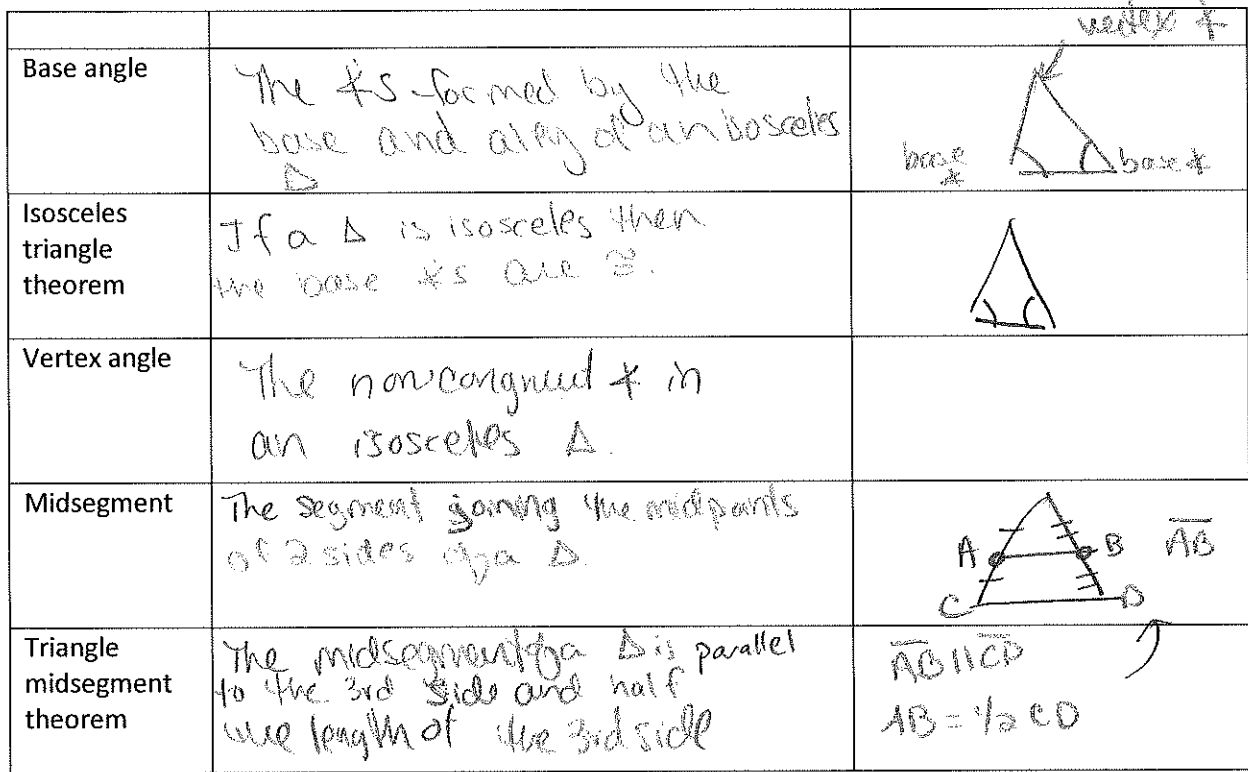 vertex ∡
Base angle
The ∡s formed by the
base and a leg of an isosceles
Δ
base
∡
base ∡
Isosceles
triangle
theorem
If a Δ is isosceles then
the base ∡s are ≅.
Vertex angle
The noncongruent ∡ in
an isosceles Δ.
Midsegment
The segment joining the midpoints
of 2 sides of a Δ.
A
B
AB
C
D
Triangle
midsegment
theorem
The midsegment of a Δ is parallel
to the 3rd side and half
the length of the 3rd side
AB || CD
AB = 1/2 CD